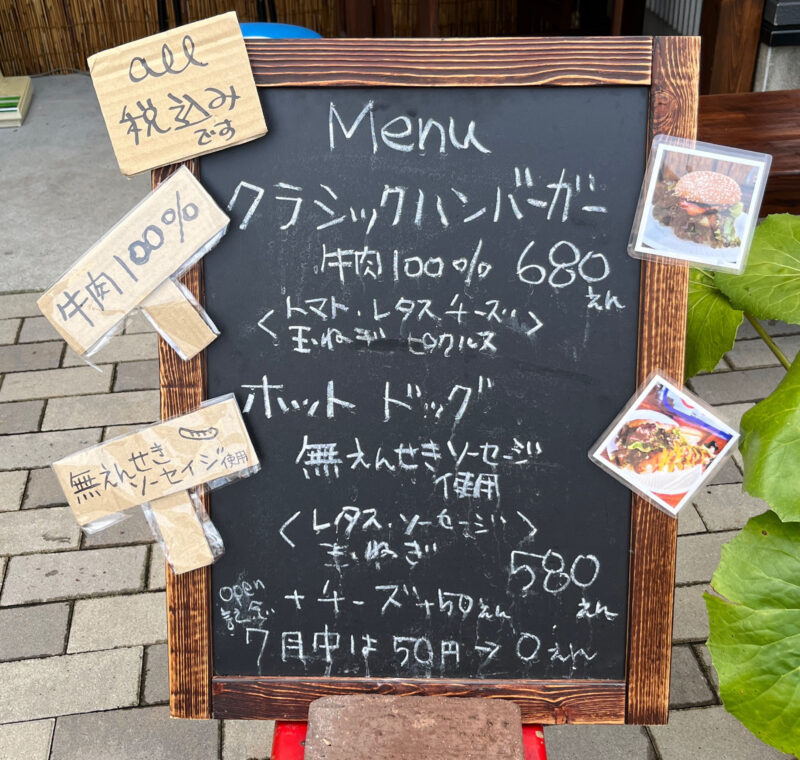 all
税込み
です
牛肉100%
無えんせき
ソーセイジ使用
Menu
クラシックハンバーガー
牛肉100% 680
えん
<トマト・レタスチーズ>
玉ねぎ ピクルス
ホット ドッグ
無えんせきソーセージ
使用
<レタス・ソーセージ>
玉ねぎ
580
えん
open
+チーズ+50えん
7月中は50円→0えん